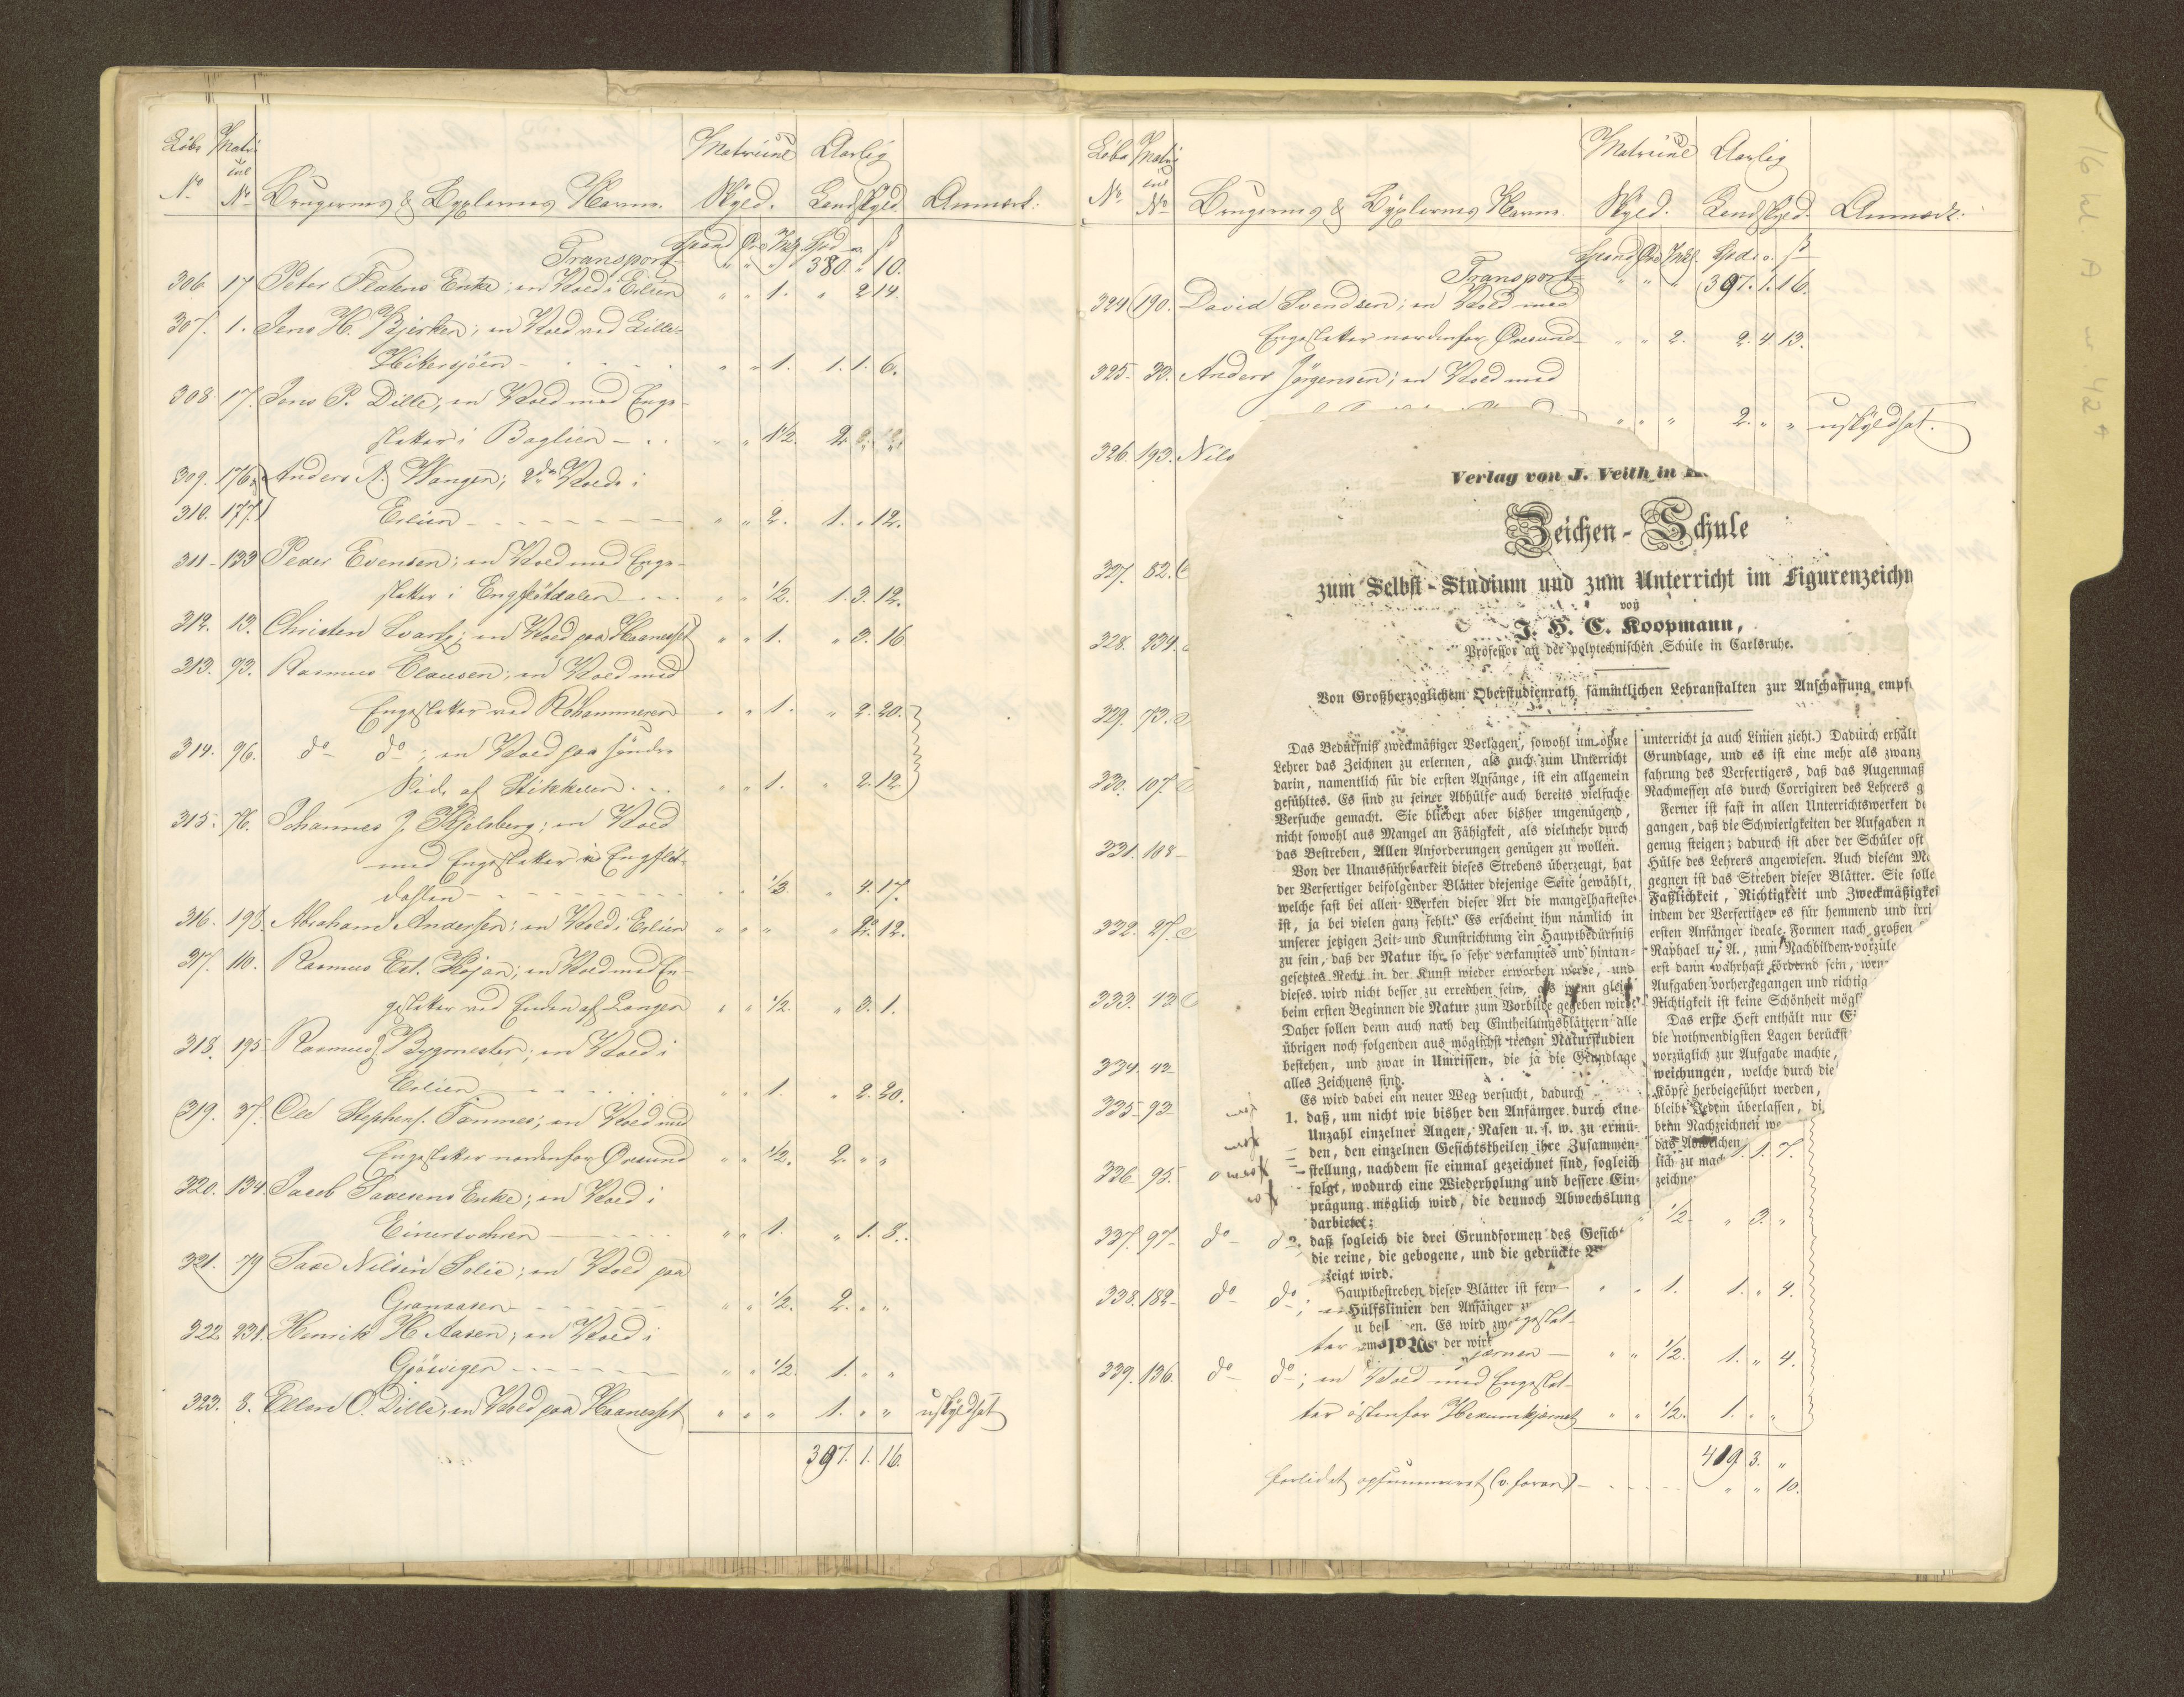 Løbe Matri
cul
No No Brugernes & Byxlernes Navne. Matricul Skyld. Aarlig Landskyld Anmærk.
Spand Øre Mkl. Spd o. ß
Transport " " " 380 " 10.
306. 17 Peter Flatens Enke; en Vold i Erlien " " 1. " 2 14.
307. 1. Jens H. Bjerken; en Vold ved Lille-
Hittersjöen " " 1. 1. 1. 6.
308. 17. Jens P. Dille; en Vold med Enge-
sletter i Baglien
309. 176. Anders N. Wangen; 2de Volde i
310. 177. Erlien " " 2. 1. " 12.
311 133 Peder Evensen; en Vold med Enge-
sletter i Engflötdalen " " 1/2. 1. 3. 12.
312. 13. Christen Svart; en Vold paa Haanesset " " 1. " 3. 16
313. 93. Rasmus Clausen; en Vold med
Engesletter ved Röhammeren " " 1. " 2. 20.
314. 96. do do; en Vold paa söndre
Side af Stikkelen " " 1. " 2. 12
315. 76. Johannes J. Kjelsberg; en Vold
med Engesletter i Engflöt-
dahlen " " 1/3 " 4. 17.
316. 198. Abraham Andersen; en Vold i Erlien " " " " 2. 12.
317. 110. Rasmus Est. Kojan; en Vold med En-
gesletter ved Enden af Langen " " 1/2. " 3. 1.
318. 195 Rasmus J. Bygmester; en Vold i
Erlien " " 1. " 2. 20.
319. 37. Ole Stephens. Tamnes; en Vold med
Engesletter nordenfor Øresund " " 1/2. 2. " "
320. 134. Jacob Saxesens Enke; en Vold i
Einersvolden " " 1. " 1. 8.
321. 79 Saxe Nilsen Solie; en Vold paa
Granaasen " " 1/2. 2. " "
322. 231. Henrik H. Aasen; en Vold i
Gjösvigen " " 1/2. 1. " "
323. 8. Ellend O. Dille; en Vold paa Haanesset " " " 1. " " uskyldsat
397. 1. 16.
Løbe Matri
cul
No No Brugernes & Byxlernes Navne. Matricul Skyld. Aarlig Landskyld. Anmærk.
Spand Øre Mkl. Spd o. ß
Transport " " " 397. 1. 16.
324 190. David Svendsen; en Vold med
Engesletter nordenfor Øresund " " 2. 2. 4. 13.
325 30. Anders Jörgensen; en Vold med
" " " 2. " " uskyldsat.
326. 193. Nils
327. 82.
328. 234.
329. 73.
330. 107.
331. 108
332. 27.
333. 42
334. 42
335 93
336 95. 1. 1. 7.
337. 97 do 1/2. " 3. "
338. 182 do do; " 1. 1. " 4.
geslet-
ter jærnen " " 1/2 1. " 4.
339. 136. do do; en Vold med Engeslet-
ter östenfor Hexumkjærnet " " 1/2. 1. " "
419. 3. "
forlidet opsummeret (v. foran) " " 10.
Verlag von J. Veith in
Zeichen-Schule
zum Selbst-Studium und zum Unterricht im Figurenzeichn
von
J. H. C. Koopmann,
Professor an der polytechnischen Schule in Carlsruhe.
Von Großherzoglichem Oberstudienrath sämmtlichen Lehranstalten zur Anschaffung empf
Das Bedürfniß zweckmäßiger Vorlagen, sowohl um ohne
Lehrer das Zeichnen zu erlernen, als auch zum Unterricht
darin, namentlich für die ersten Anfänge, ist ein allgemein
gefühltes. Es sind zu seiner Abhülfe auch bereits vielfache
Versuche gemacht. Sie blieben aber bisher ungenügend,
nicht sowohl aus Mangel an Fähigkeit, als vielmehr durch
das Bestreben, Allen Anforderungen genügen zu wollen.
Von der Unausführbarkeit dieses Strebens überzeugt, hat
der Verfertiger beifolgender Blätter diejenige Seite gewählt,
welche fast bei allen Werken dieser Art die mangelhafteste
ist, ja bei vielen ganz fehlt. Es erscheint ihm nämlich in
unserer jetzigen Zeit- und Kunstrichtung ein Hauptbedürfniß
zu sein, daß der Natur ihr so sehr verkanntes und hintan-
gesetztes Recht in der Kunst wieder erworben werde, und
dieses wird nicht besser zu erreichen sein, als wenn gleich
beim ersten Beginnen die Natur zum Vorbilde gegeben wird.
Daher sollen denn auch nach den Eintheilungsblättern alle
übrigen noch folgenden aus möglichst treuen Naturstudien
bestehen, und zwar in Umrissen, die ja die Grundlage
alles Zeichnens sind.
Es wird dabei ein neuer Weg versucht, dadurch
1. daß, um nicht wie bisher den Anfänger durch eine
Unzahl einzelner Augen, Nasen u. s. w. zu ermü-
den, den einzelnen Gesichtstheilen ihre Zusammen-
stellung, nachdem sie einmal gezeichnet sind, sogleich
folgt, wodurch eine Wiederholung und bessere Ein-
prägung möglich wird, die dennoch Abwechslung
darbietet;
2. daß sogleich die drei Grundformen des Gesicht
die reine, die gebogene, und die gedrückte
zeigt wird.
Hauptbestreben dieser Blätter ist fern
Hülfslinien den Anfänger
en. Es wird zw
der wirk
unterricht ja auch Linien zieht.) Dadurch erhält
Grundlage, und es ist eine mehr als zwanz
fahrung des Verfertigers, daß das Augenmaß
Nachmessen als durch Corrigiren des Lehrers g
Ferner ist fast in allen Unterrichtswerken de
gangen, daß die Schwierigkeiten der Aufgaben n
genug steigen; dadurch ist aber der Schüler oft
Hülfe des Lehrers angewiesen. Auch diesem Ma
gegnen ist das Streben dieser Blätter. Sie solle
Faßlichkeit, Richtigkeit und Zweckmäßigkei
indem der Verfertiger es für hemmend und irri
ersten Anfänger ideale Formen nach großen
Raphael u. A., zum Nachbilden vorzule
erst dann wahrhaft fördernd sein, wen
Aufgaben vorhergegangen und richtig
Richtigkeit ist keine Schönheit mögl
Das erste Heft enthält nur Ei
die nothwendigsten Lagen berücksi
vorzüglich zur Aufgabe machte,
weichungen, welche durch die
Köpfe herbeigeführt werden,
bleibt Jedem überlassen, di
beim Nachzeichnen we
das Abweichen
lich zu mach
zeichne
16 kl. A nr. 42